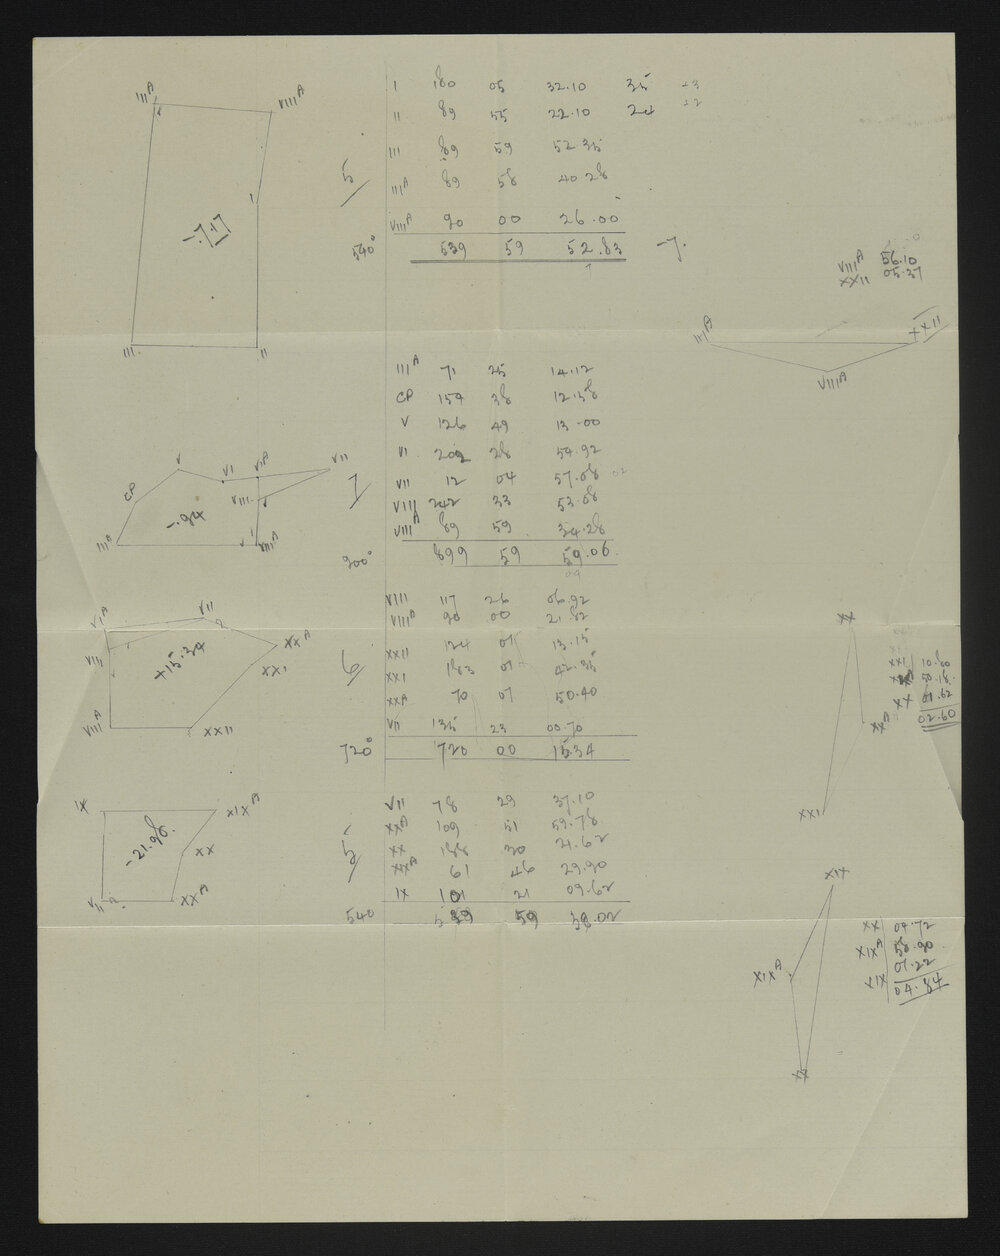 I 180 05 32.10 35 +3
II 89 55 22.10 24 +2
III 89 59 52.35
III^A 89 58 40.28
VIII^A 90 00 26.00
540° 539 59 52.83 -7.
5
III^A
VIII^A
I
-7.17
III
II
VIII^A 56.10
XXII 05.37
III^A
XXII
VIII^A
III^A 71 25 14.12
CP 154 38 12.58
V 126 49 13.00
VI 202 28 54.92
VII 12 04 57.08 02
VIII 242 33 53.08
VIII^A 89 59 34.28
900° 899 59 59.06
09
7
V
VI
VI^A
VII
CP
VIII
-.94
III^A
VIII^A
VIII 117 26 06.92
VIII^A 90 00 21.82
XXII 124 01 13.15
XXI 183 01 42.35
XXA 70 07 50.40
VII 135 23 00.70
720° 720 00 15.34
6
VI^A
VII
XX^A
XXI
VIII
+15.34
VIII^A
XXII
XX
XXI 10.80
50.18
XX 01.62
02.60
XX^A
XXI
VII 78 29 37.10
XX^A 109 51 59.78
XX 188 30 21.62
XX^A 61 46 29.90
IX 101 21 09.62
540 539 59 38.02
5
IX
XIX^A
-21.98
XX
VII
XX^A
XIX
XX 04.72
XIX^A 58.90
01.22
XIX 04.84
XIX^A
XX